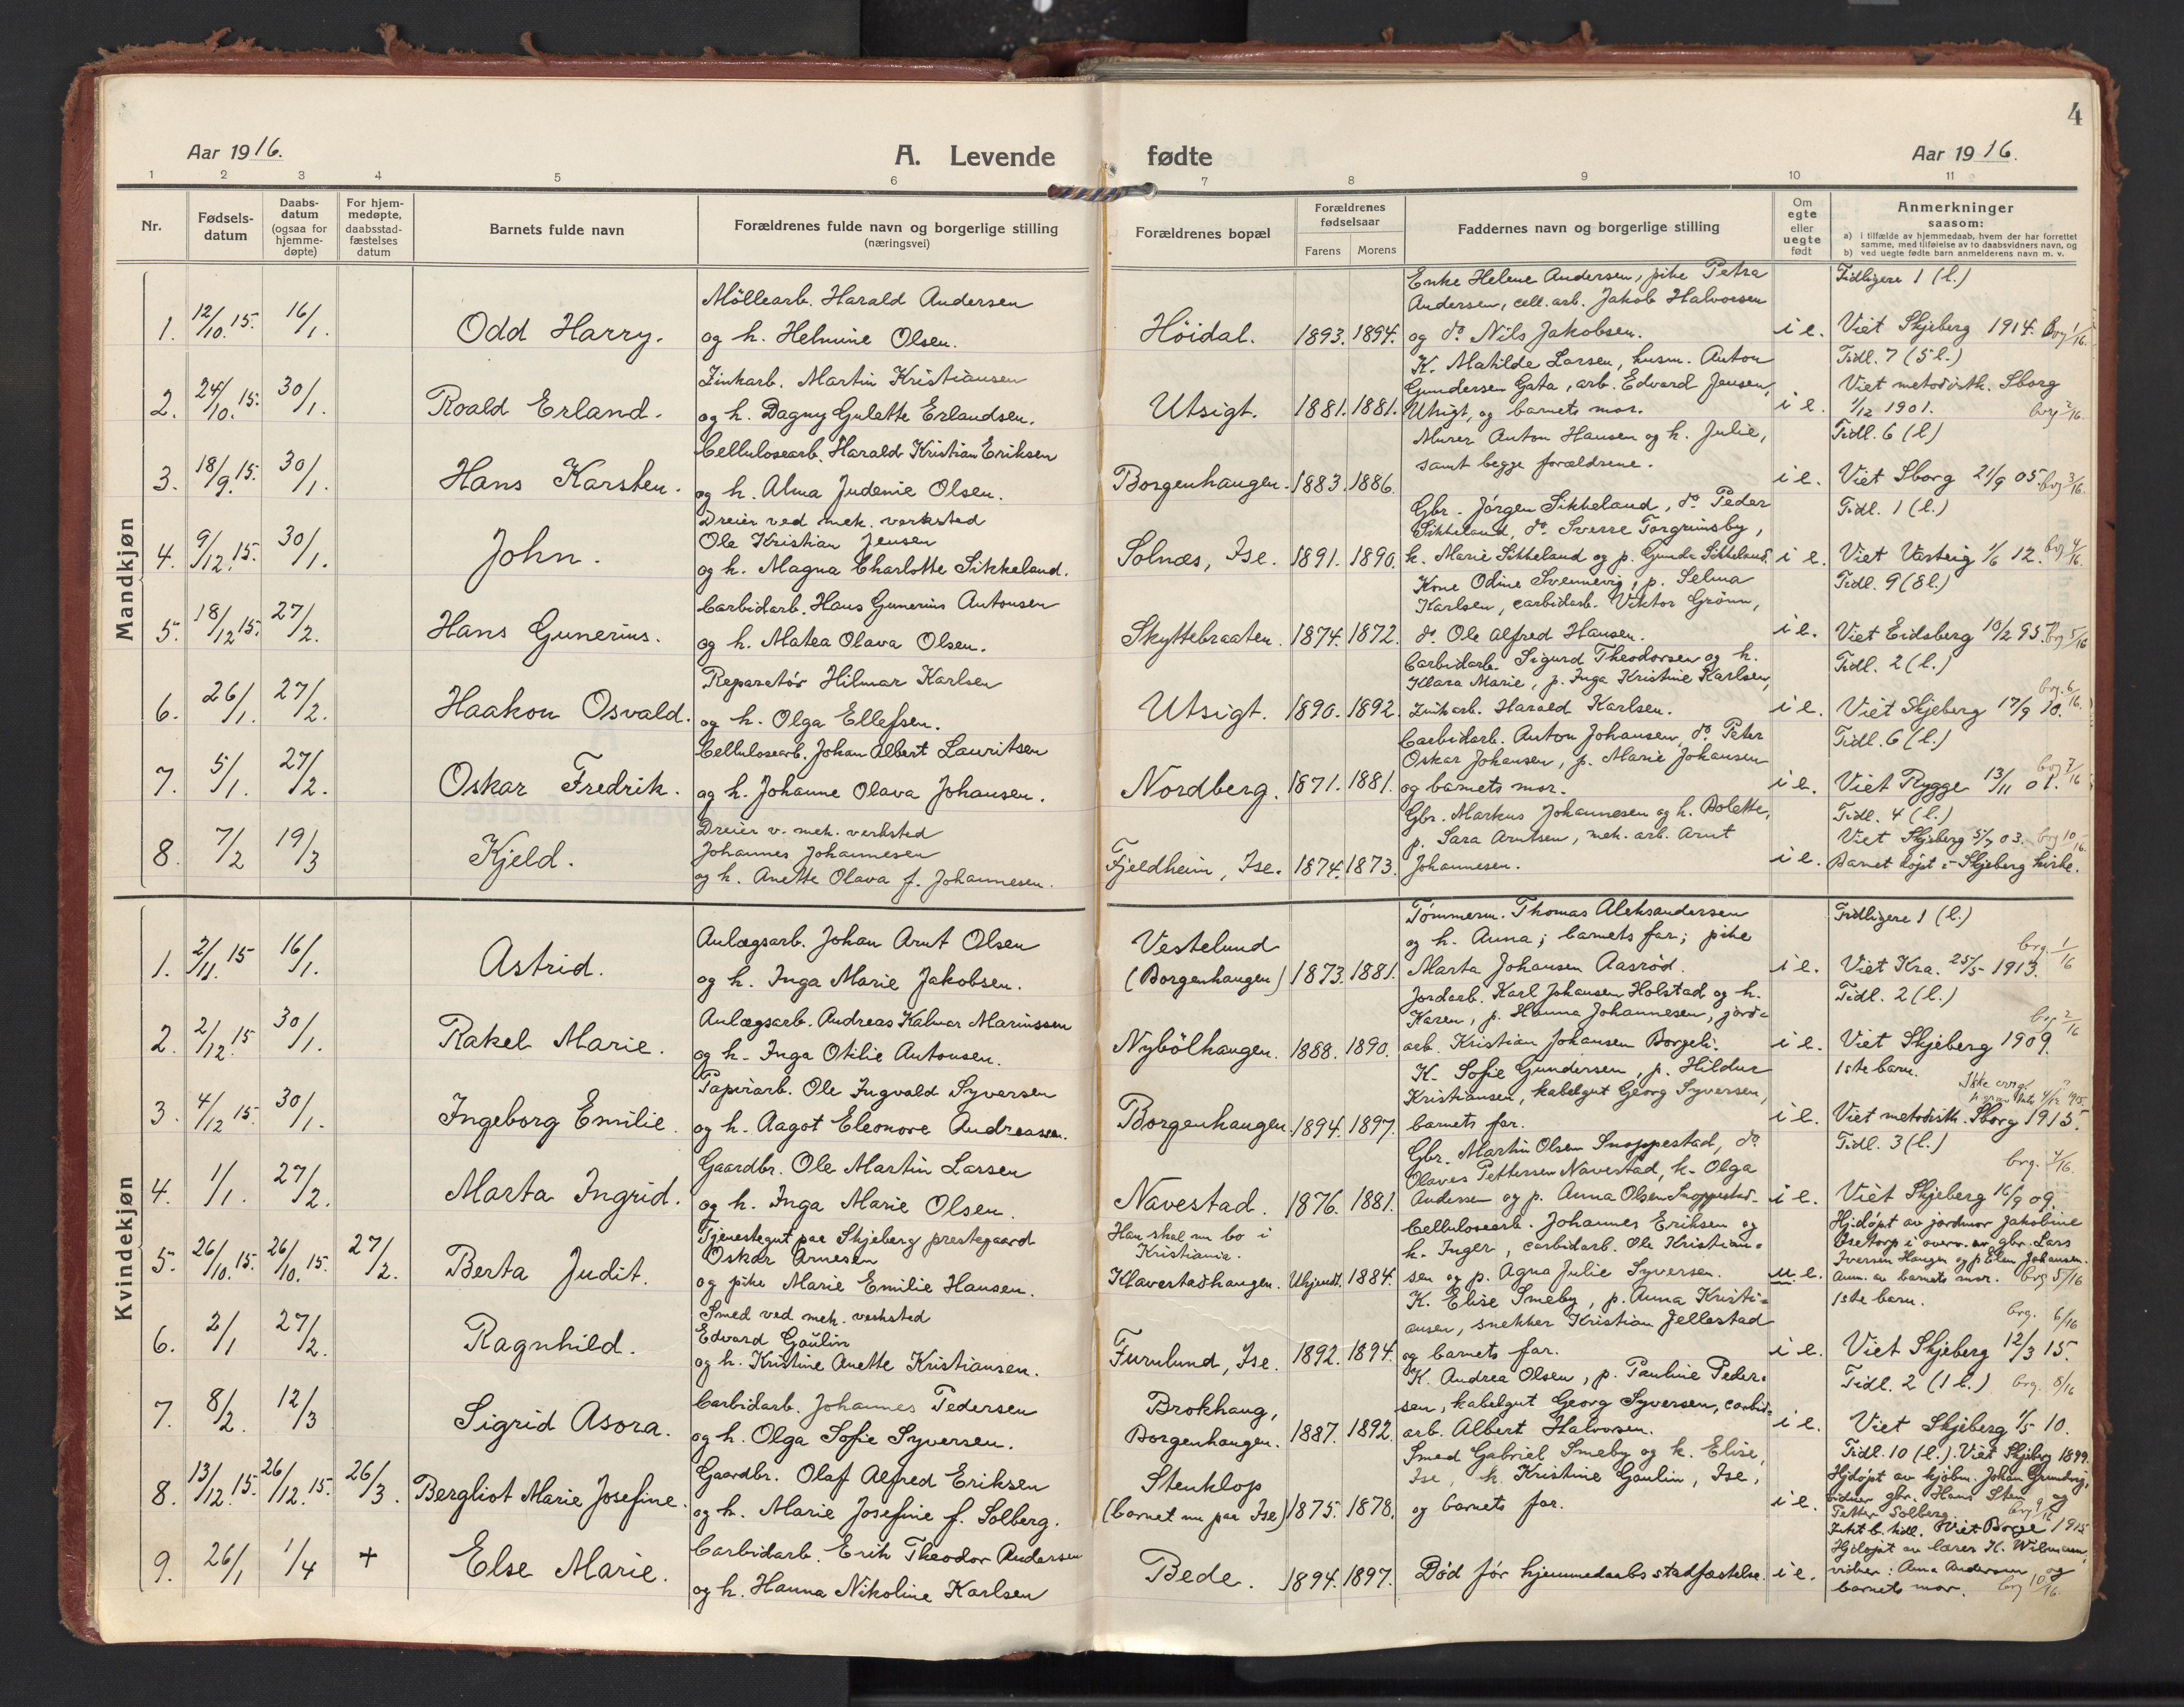 4
Aar 1916.
A. Levende fødte
Aar 1916.
1 2 3 4 5 6 7 8 9 10 11
Nr.
Fødsels-
datum
Daabs-
datum
(ogsaa for
hjemme-
døpte)
For hjem-
medøpte,
daabsstad-
fæstelses
datum
Barnets fulde navn
Forældrenes fulde navn og borgerlige stilling
(næringsvei)
Forældrenes bopæl
Forældrenes
fødselsaar
Farens Morens
Faddernes navn og borgerlige stilling
Om
egte
eller
uegte
født
Anmerkninger
saasom:
a) i tilfælde av hjemmedaab, hvem der har forrettet
samme, med tilføielse av to daabsvidners navn, og
b) ved uegte fødte barn anmelderens navn m. v.
Mandkjøn
1. 12/10.15. 16/1. Odd Harry.
Möllearb. Harald Andersen
og h. Helmine Olsen.
Höidal. 1893. 1894.
Enke Helene Andersen, pike Petra
Andersen, cell. arb. Jakob Halvorsen
og do Nils Jakobsen.
i e.
Tidligere 1 (l.)
Viet Skjeberg 1914. brg 1/16.
2. 24/10.15. 30/1. Roald Erland.
Zinkarb. Martin Kristiansen
og h. Dagny Gulatte Erlandsen.
Utsigt. 1881. 1881.
K. Matilde Larsen, husm. Anton
Gundersen Gata, arb. Edvard Jensen,
Utsigt, og barnets mor.
i e.
Tidl. 7 (5 l.)
Viet metodistk. Sborg
1/12 1901. brg 2/16.
3. 18/9.15. 30/1. Hans Karsten.
Cellulosearb. Harald Kristian Eriksen
og h. Alma Judenie Olsen.
Borgenhaugen. 1883. 1886.
Murer Anton Hansen og h. Julie,
samt begge forældrene.
i e.
Tidl. 6 (l)
Viet Sborg 21/9 05. brg 3/16.
4. 9/12.15. 30/1. John.
Dreier ved mek. verksted
Ole Kristian Jensen
og h. Magna Charlotte Sikkeland.
Solnæs, Ise. 1891. 1890.
Gbr. Jörgen Sikkeland, do Peder
Sikkeland, do Sverre Torgrimsby,
h. Marie Sikkeland og p. Gunda Sikkeland.
i e.
Tidl. 1 (l.)
Viet Varteig 1/6 12. brg 4/16.
5. 18/12.15. 27/2. Hans Gunerius.
Carbidarb. Hans Gunerius Antonsen
og h. Matea Olava Olsen.
Skyttebraaten. 1874. 1872.
Kone Odine Svennevig, p. Selma
Karlsen, carbidarb. Viktor Grönn,
do. Ole Alfred Hansen.
i e.
Tidl. 9 (8 l.)
Viet Eidsberg 10/2 95. brg 5/16
6. 26/1. 27/2. Haakon Osvald.
Reparatör Hilmar Karlsen
og h. Olga Ellefsen.
Utsigt. 1890. 1892.
Carbidarb. Sigurd Theodorsen og h.
Klara Marie, p. Inga Kristine Karlsen,
Zinkarb. Harald Karlsen.
i e.
Tidl. 2 (l.)
Viet Skjeberg 17/9 10. brg. 6/16.
7. 5/1. 27/2. Oskar Fredrik.
Cellulosearb. Johan Albert Lauritsen
og h. Johanne Olava Johansen.
Nordberg. 1871. 1881.
Carbidarb. Anton Johansen, do. Peter
Oskar Johansen, p. Marie Johansen
og barnets mor.
i e.
Tidl. 6 (l.)
Viet Rygge 13/11 01. brg 7/16
8. 7/2 19/3 Kjeld.
Dreier v. mek. verksted
Johannes Johannesen
og h. Anette Olava f. Johannesen.
Fjeldheim, Ise. 1874. 1873.
Gbr. Markus Johannesen og h. Bolette,
p. Sara Arntsen, mek. arb. Arnt
Johannesen.
i e.
Tidl. 4 (l.)
Viet Skjeberg 5/7 03. brg 10/16.
Barnet döpt i Skjeberg kirke.
Kvindekjøn
1. 2/11.15 16/1. Astrid.
Anlægsarb. Johan Arnt Olsen
og h. Inga Marie Jakobsen.
Vestelund
(Borgenhaugen) 1873. 1881.
Tömmerm. Thomas Aleksandersen
og h. Anna; barnets far; pike
Marta Johansen Aasröd.
i e.
Tidligere 1 (l.)
Viet Kra. 25/5 1913. brg. 1/16
2. 2/12.15 30/1. Rakel Marie.
Anlægsarb. Andreas Kalmar Marinssen
og h. Inga Otilie Antonsen.
Nybölhaugen. 1888. 1890.
Jordarb. Karl Johansen Holstad og h.
Karen, p. Hanna Johannesen, jord-
arb. Kristian Johansen Borgeli.
i e.
Tidl. 2 (l.)
Viet Skjeberg 1909. brg 2/16
3. 4/12 15. 30/1. Ingeborg Emilie.
Papirarb. Ole Ingvald Syversen
og h. Aagot Eleonore Andreassen.
Borgenhaugen 1894. 1897.
K. Sofie Gundersen, p. Hildur
Kristiansen, kabelgut Georg Syversen,
barnets far.
i e.
1ste barn.
Viet metodistk. Sborg 1915.
4. 1/1. 27/2. Marta Ingrid.
Gaardbr. Ole Martin Larsen
og h. Inga Marie Olsen.
Navestad. 1876. 1881.
Gbr. Martin Olsen Snoppestad, do
Olaves Pettersen Navestad, k. Olga
Andersen og p. Anna Olsen Snoppestad.
i e.
Tidl. 3 (l.)
brg. 4/16.
Viet Skjeberg 16/9 09.
5. 26/10.15. 26/10.15. 27/2. Berta Judit.
Tjenestegut paa Skjeberg prestegaard
Oskar Arnesen
og pike Marie Emilie Hansen.
Han skal nu bo i
Kristiania.
Klavestadhaugen. Ukjendt. 1884.
Cellulosearb. Johannes Eriksen og
h. Inger, carbidarb. Ole Kristian-
sen og p. Agna Julie Syversen.
u e.
Hjdöpt av jordmor Jakobine
Osetorp i overv. av gbr. Lars
Iversen Haugen og p Elen Johansen.
Anm. av barnets mor. brg 5/16
6. 2/1 27/2. Ragnhild.
Smed ved mek. verksted
Edvard Gaulin
og h. Kristine Anette Kristiansen.
Furulund, Ise. 1892. 1894.
K. Elise Smeby, p. Anna Kristi-
ansen, snekker Kristian Jellestad
og barnets far.
i e.
1ste barn.
brg. 6/16
Viet Skjeberg 12/3 15.
7. 8/2. 12/3 Sigrid Asora.
Carbidarb. Johannes Pedersen
og h. Olga Sofie Syversen.
Brokhaug,
Borgenhaugen. 1887. 1892.
K. Andrea Olsen, p. Pauline Peder-
sen, kabelgut Georg Syversen, carbid-
arb. Albert Halvorsen.
i e.
Tidl. 2 (1 l.) brg. 8/16
Viet Skjeberg 1/5 10.
8. 13/12.15. 26/12.15. 26/3. Bergliot Marie Josefine.
Gaardbr. Olaf Alfred Eriksen
og h. Marie Josefine f. Solberg.
Stenklop
(barnet nu paa Ise) 1875. 1878.
Smed Gabriel Smeby og k. Elise,
Ise, k. Kristine Gaulin, Ise,
og barnets far.
i e.
Tidl. 10 (l.). Viet Skjeberg 1899.
Hjdöpt av kjöbm. Johan Grundvig,
vidner gbr. Hans Sten og
Petter Solberg. brg 9/16
9. 26/1 1/4 + Else Marie.
Carbidarb. Erik Theodor Andersen
og h. Hanna Nikoline Karlsen
Bede. 1894. 1897.
Död för hjemmedaabsstadfæstelse.
i e.
Intet b. tidl. Viet Borge 1915
Hjdöpt av lærer K. Wilmann,
vidner: Anna Andersen og
barnets mor. brg 10/16.